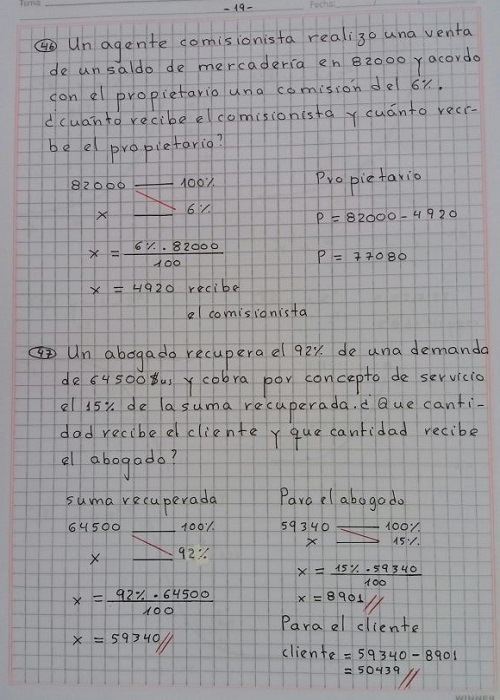 Tema:
- 19 -
Fecha:
46 Un agente comisionista realizo una venta
de un saldo de mercadería en 82000 y acordo
con el propietario una comisión del 6%.
¿cuánto recibe el comisionista y cuánto reci-
be el propietario?
82000 — 100%
x — 6%
x = 6% . 82000 / 100
x = 4920 recibe
el comisionista
Propietario
P = 82000 - 4920
P = 77080
47 Un abogado recupera el 92% de una demanda
de 64500 $us y cobra por concepto de servicio
el 15% de la suma recuperada.¿Que canti-
dad recibe el cliente y que cantidad recibe
el abogado?
suma recuperada
64500 — 100%
x — 92%
x = 92% . 64500 / 100
x = 59340 //
Para el abogado
59340 — 100%
x — 15%
x = 15% . 59340 / 100
x = 8901 //
Para el cliente
cliente = 59340 - 8901
= 50439 //
WINNER